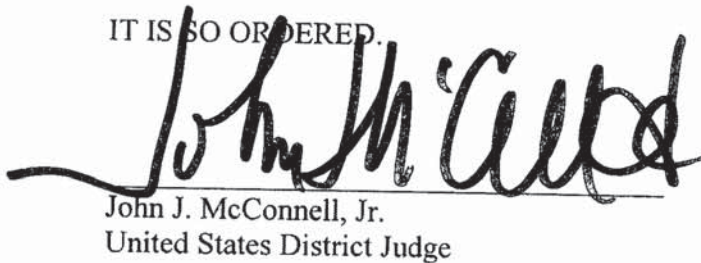 IT IS SO ORDERED.
John J. McConnell, Jr.
United States District Judge